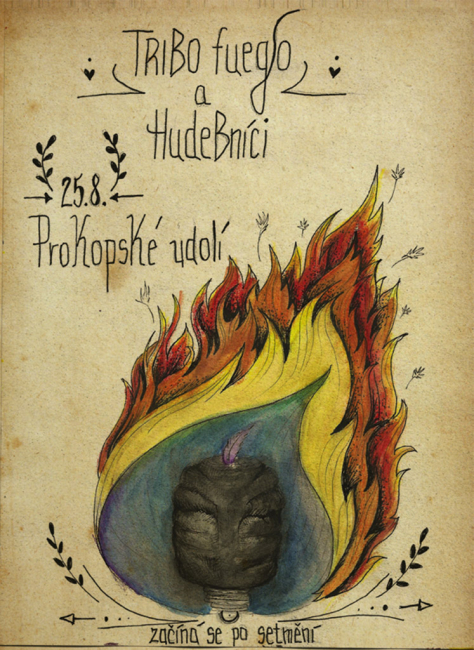 TRIBO fuego
a
HudeBníci
25.8.
ProKopsKé udolí
začíná se po setmění